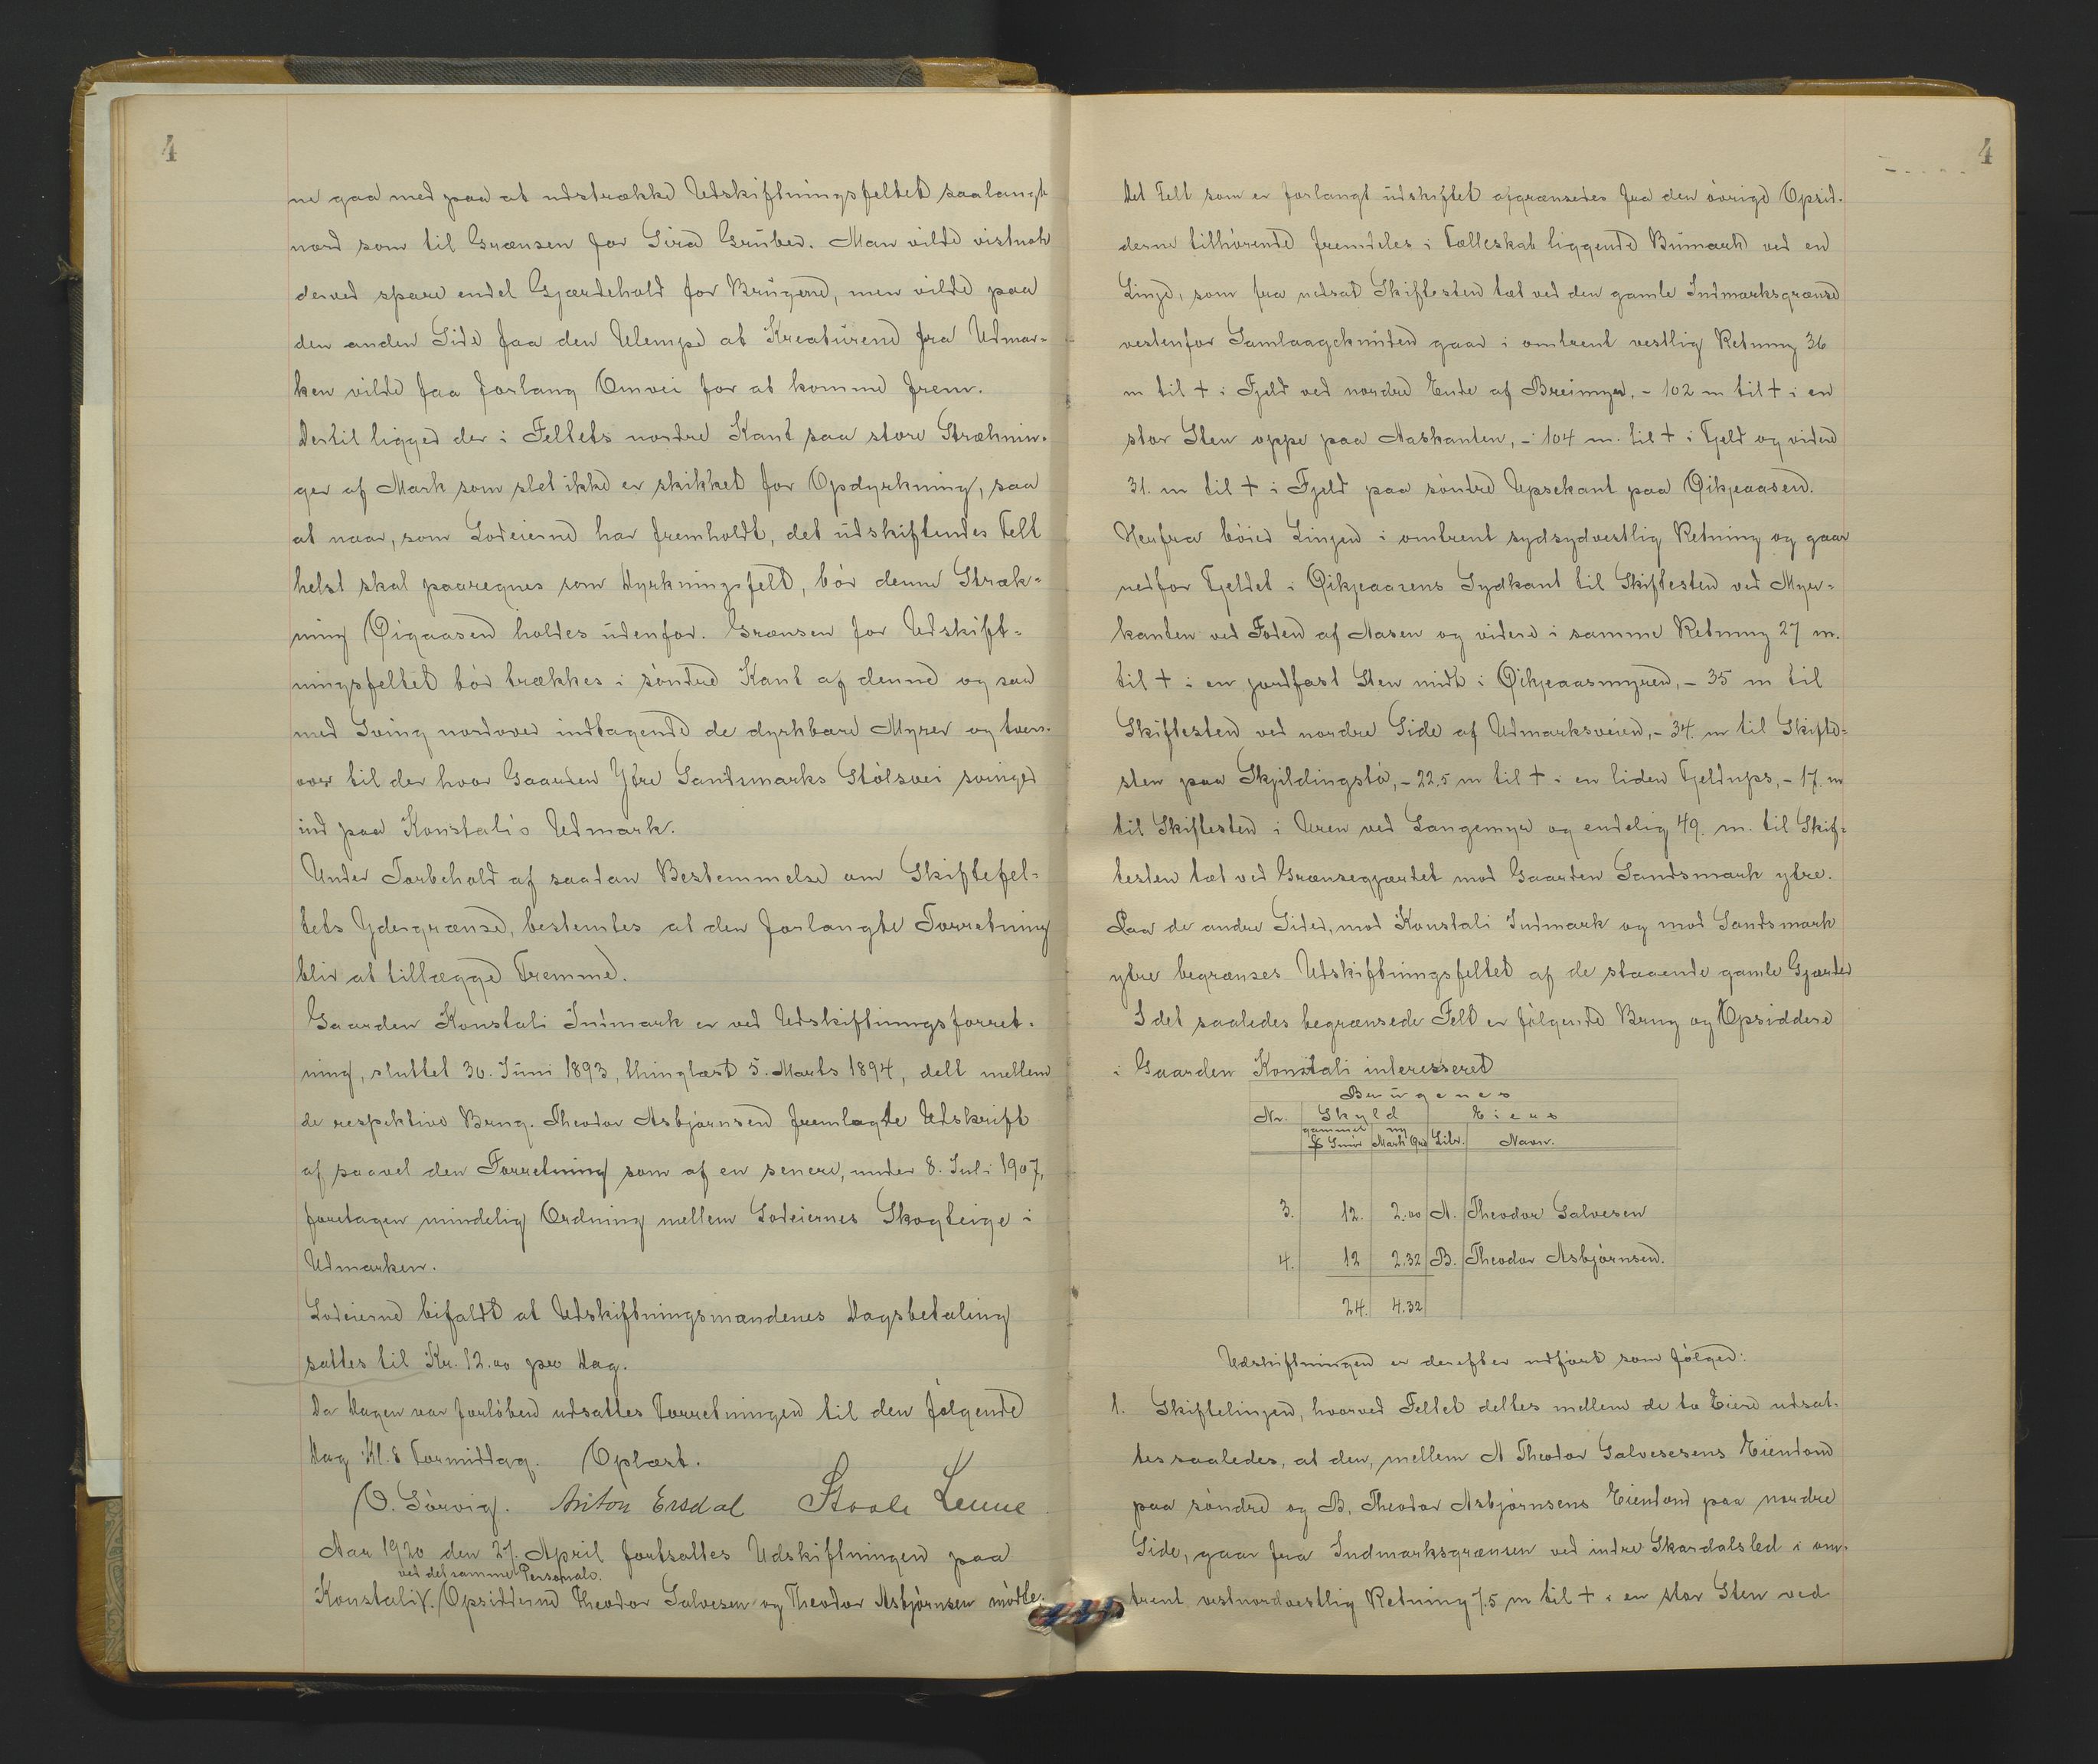 4
ne gaa med paa at udstrække Udskiftningsfeltet saalangt
nord som til Grænsen for Sira Gruber. Man vilde vistnok
derved spare endel Gjærdehold for Brugene, men vilde paa
den anden Side faa den Ulempe at Kreaturene fra Udmar-
ken vilde faa forlang Omvei for at komme frem.
Dertil ligger der i Feltets nordre Kant saa store Stræknin-
ger af Mark som slet ikke er skikket for Opdyrkning, saa
at naar, som Lodeierne har fremholdt, det udskiftendes Felt
helst skal paaregnes som Dyrkningsfelt, bör denne Stræk-
ning Öigaasen holdes udenfor. Grænsen for Udskift-
ningsfeltet bör trækkes i söndre Kant af denne og saa
med Sving nordover indtagende de dyrkbare Myrer og tver-
over til der hvor Gaarden Ytre Sandsmarks Stölsvei svinger
ind paa Konstali's Udmark.
Under Forbehold af saadan Bestemmelse om Skiftefel-
tets Ydergrænse, bestemtes at den forlangte Forretning
blir at tillægge Fremme.
Gaarden Konstali Indmark er ved Udskiftningsforret-
ning, sluttet 30. Juni 1893, thinglæst 5. Marts 1894, delt mellem
de respektive Brug. Theodor Asbjörnsen fremlagde Udskrift
af saavel den Forretning som af en senere, under 8. Juli 1907,
foretagen mindelig Ordning mellem Lodeiernes Skogteige i
Udmarken.
Lodeierne bifaldt at Udskiftningsmændenes Dagsbetaling
sattes til Kr. 12.00 pr Dag.
Da Dagen var forlöben udsattes Forretningen til den fölgende
Dag Kl. 8 Formiddag. Oplæst.
O. Sörvig. Anton Ersdal Staale Leune
Aar 1920 den 27. April fortsattes Udskiftningen paa
ved det samme Personale.
Konstali. Opsidderne Theodor Salvesen og Theodor Asbjörnsen mödte.
4
Det Felt som er forlangt udskiftet afgrænsedes fra den övrige Opsid-
derne tilhörende fremdeles i Fælleskab liggende Bumark ved en
Linje, som fra nedsat Skiftesten tæt ved den gamle Indmarksgrænse
vestenfor Samlaageknuten gaar i omtrent vestlig Retning 36
m til + i Fjeld ved nordre Ende af Breimyr, - 102 m til + i en
stor Sten oppe paa Aaskanten, - 104 m. til + i Fjeld og videre
31. m til + i Fjeld paa söndre Upsekant paa Öikjeaasen.
Herfra böier Linjen i omtrent sydsydvestlig Retning og gaar
nedfor Fjeldet i Öikjeaasens Sydkant til Skiftesten ved Myr-
kanten ved Foden af Aasen og videre i samme Retning 27 m.
til + i en jordfast Sten midt i Öikjeaasmyren, - 35 m til
Skiftesten ved nordre Side af Udmarksveien, - 34. m til Skifte-
sten paa Skjildingstö, - 22.5 m til + i en liden Fjeldups, - 17. m
til Skiftesten i Uren ved Langemyr og endelig 49. m. til Skif-
testen tæt ved Grænsegjærdet mod Gaarden Sandsmark ytre.
Paa de andre Sider, mod Konstali Indmark og mod Sandsmark
ytre begrænses Udskiftningsfeltet af de staaende gamle Gjærder
I det saaledes begrænsede Felt er fölgende Brug og Opsiddere
i Gaarden Konstali interesseret
Brugenes
Nr. Skyld Eiers
gammel ny
Smör Mark Øre Litr. Navn.
3. 12. 2.00 A. Theodor Salvesen
4. 12 2.32 B. Theodor Asbjörnsen.
24. 4.32
Udskiftningen er derefter udfört som fölger:
1. Skiftelinjen, hvorved Feltet deltes mellem de to Eiere udsat-
tes saaledes, at den, mellem A Theodor Salvesesens Eiendom
paa söndre og B, Theodor Asbjörnsens Eiendom paa nordre
Side, gaar fra Indmarksgrænsen ved indre Skardalsled i om-
trent vestnordvestlig Retning 7.5 m til + i en stor Sten ved